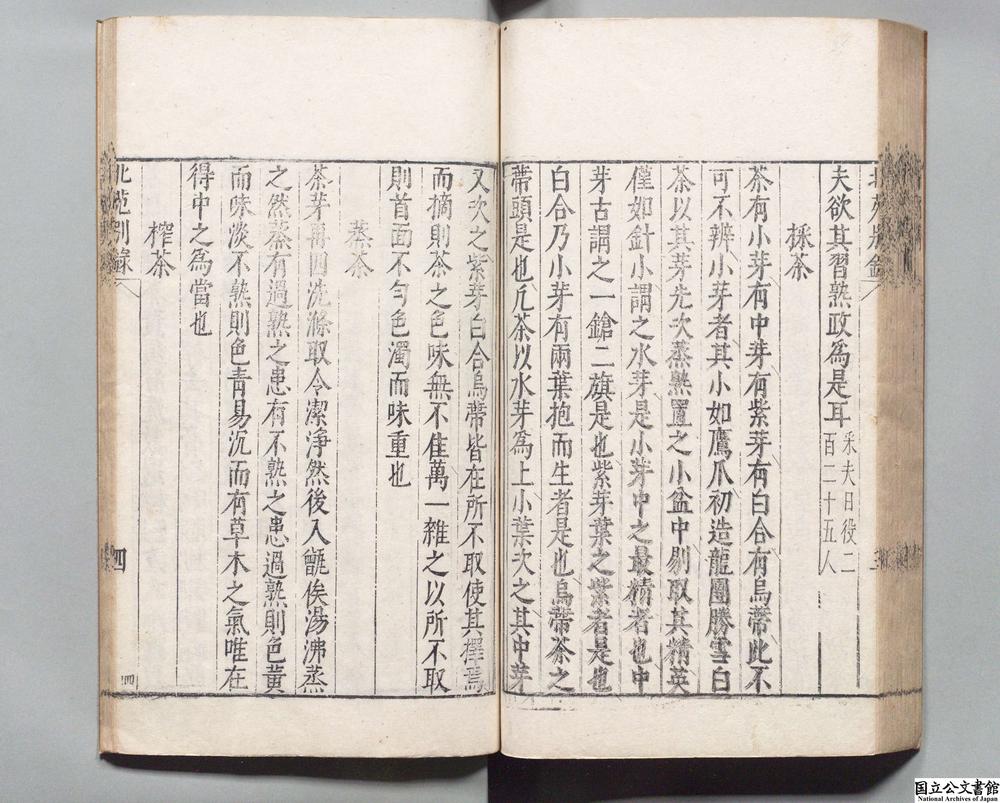 北苑別錄
夫欲其習熟政爲是耳
采夫日役二
百二十五人
採茶
茶有小芽有中芽有紫芽有白合有烏蔕此不
可不辨小芽者其小如鷹爪初造龍團勝雪白
茶以其芽先次蒸熟置之小盆中剔取其精英
僅如針小謂之水芽是小芽中之最精者也中
芽古謂之一鎗二旗是也紫芽葉之紫者是也
白合乃小芽有兩葉抱而生者是也烏蔕茶之
蔕頭是也凡茶以水芽爲上小葉次之其中芽
又次之紫芽白合烏蔕皆在所不取使其擇焉
而摘則茶之色味無不佳萬一雜之以所不取
則首面不勻色濁而味重也
蒸茶
茶芽再四洗滌取令潔淨然後入甑俟湯沸蒸
之然蒸有過熟之患有不熟之患過熟則色黃
而味淡不熟則色青易沉而有草木之氣唯在
得中之爲當也
榨茶
北苑別錄
四
四
国立公文書館
National Archives of Japan